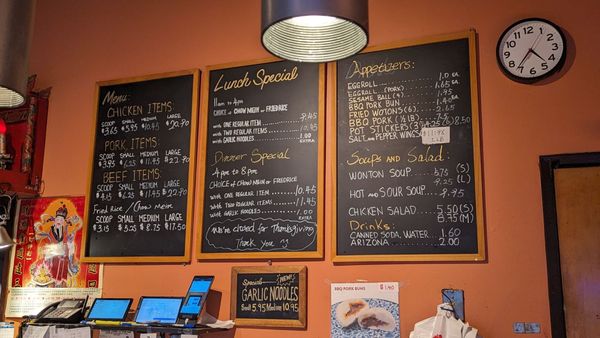 Menu:
CHICKEN ITEMS:
SCOOP SMALL MEDIUM LARGE
$3.65 $5.95 $10.45 $20.90
PORK ITEMS:
SCOOP SMALL MEDIUM LARGE
$3.95 $6.25 $11.45 $22.90
BEEF ITEMS:
SCOOP SMALL MEDIUM LARGE
$4.15 $6.25 $11.95 $22.90
Fried Rice / Chow Mein
SCOOP SMALL MEDIUM LARGE
$3.15 $5.25 $8.75 $17.50
Lunch Special
11am to 4pm
CHOICE of CHOW MEIN or FRIEDRICE
with ONE REGULAR ITEM 9.45
with TWO REGULAR ITEMS 10.45
with GARLIC NOODLES 1.00
EXTRA
Dinner Special
4pm to 8pm
CHOICE of CHOW MEIN or FRIEDRICE
with ONE REGULAR ITEM 10.45
with TWO REGULAR ITEMS 11.45
with GARLIC NOODLES 1.00
EXTRA
We're closed for Thanksgiving
Thank you
Special NEW!
GARLIC NOODLES
Small 5.95 Medium
Appetizers:
EGGROLL 1.0 EA.
EGGROLL (PORK) 1.65 EA.
SESAME BALL (4) 1.95
BBQ PORK BUN 1.40 EA.
FRIED WONTONS (6) 2.65
BBQ PORK (½ LB)
POT STICKERS 8.50
SALT AND PEPPER WINGS
Soups AND Salad:
WONTON SOUP (S)
(L)
HOT AND SOUR SOUP
CHICKEN SALAD 5.50 (S)
(M)
Drinks:
CANNED SODA, WATER 1.60
ARIZONA 2.00
BBQ PORK BUN $1.40
12
1
2
3
4
5
6
7
8
9
10
11